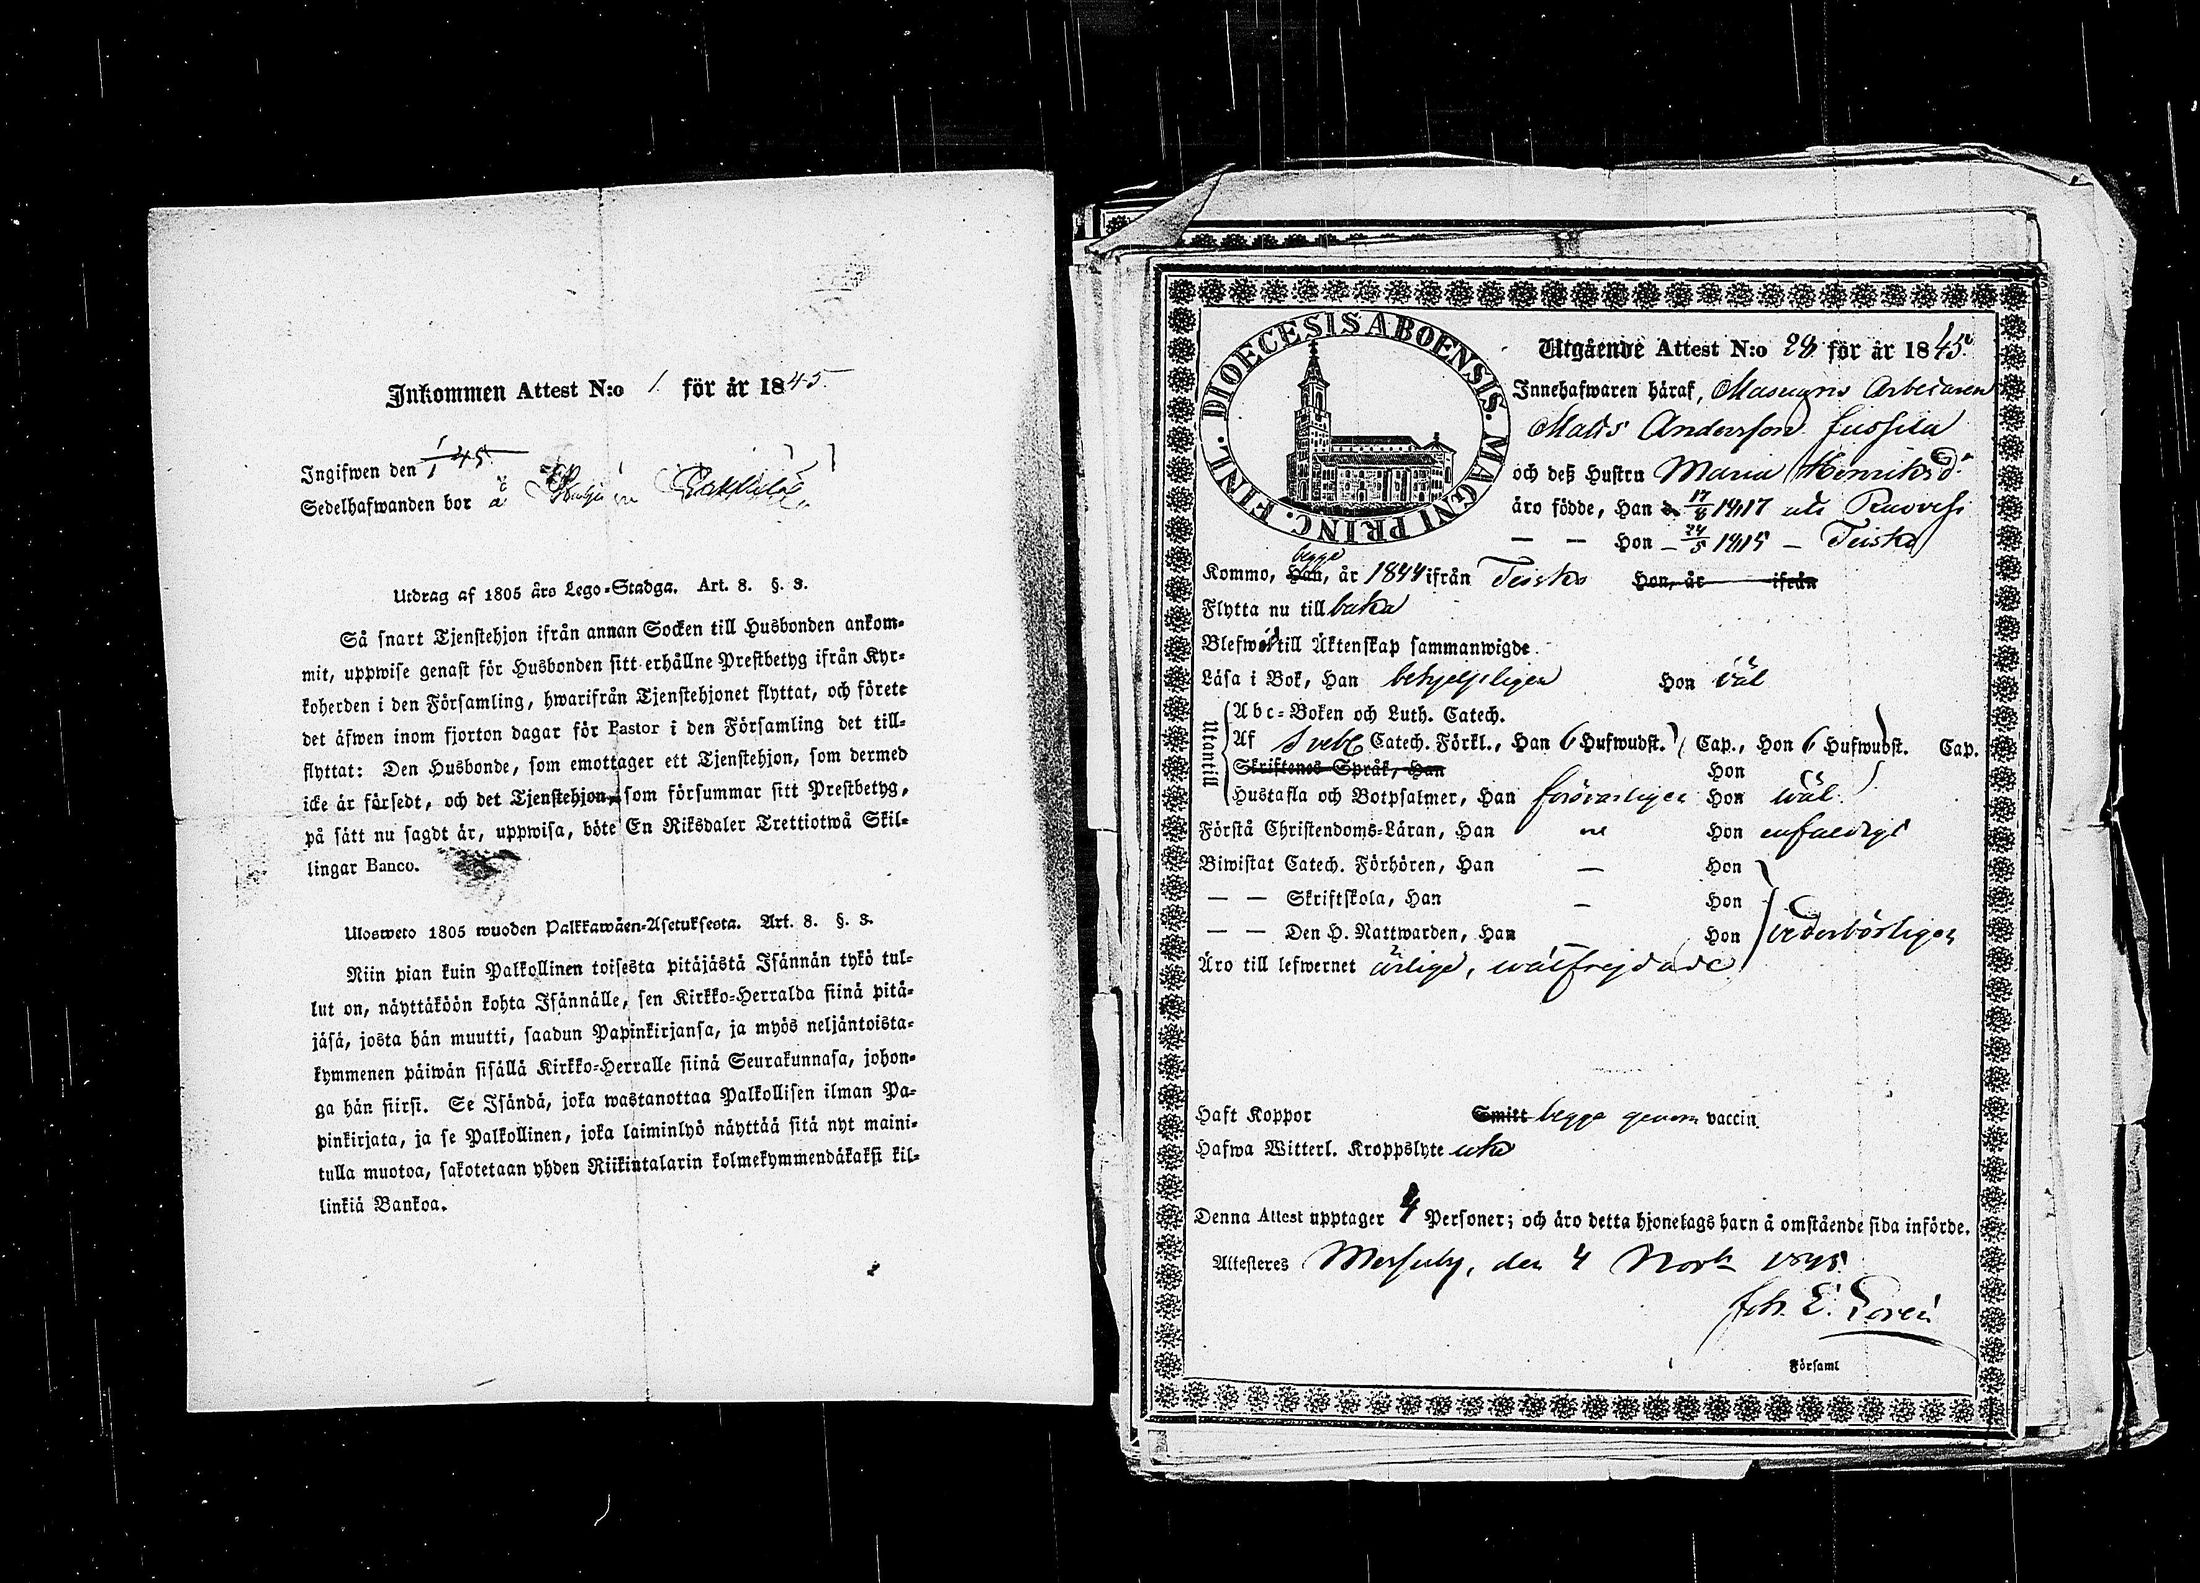 Inkommen Attest N:o 1. för år 1845.
Ingifwen den 1/1 45.
Sedelhafwanden bor å
Utdrag af 1805 års Lego-Stadga. Art. 8. §. 3.
Så snart Tjenstehjon ifrån annan Socken till Husbonden ankom-
mit, uppwise genast för Husbonden sitt erhållne Prestbetyg ifrån Kyr-
koherden i den Församling, hwarifrån Tjenstehjonet flyttat, och förete
det äfwen inom fjorton dagar för Pastor i den Församling det till-
flyttat: Den Husbonde, som emottager ett Tjenstehjon, som dermed
icke är försedt, och det Tjenstehjon, som försummar sitt Prestbetyg,
på sätt nu sagdt är, uppwisa, böte En Riksdaler Trettiotwå Skil-
lingar Banco.
Ulosweto 1805 wuoden Palkkawäen-Asetuksesta. Art. 8. §. 3.
Niin pian kuin Palkollinen toisesta pitäjästä Isännän tykö tul-
lut on, näyttäköön kohta Isännälle, sen Kirkko-Herralda siinä pitä-
jäsä, josta hän muutti, saadun Papinkirjansa, ja myös neljäntoista-
kymmenen päiwän sisällä Kirkko-Herralle siinä Seurakunnasa, johon-
ga hän siirsi. Se Isändä, joka wastanottaa Palkollisen ilman Pa-
pinkirjata, ja se Palkollinen, joka laiminlyö näyttää sitä nyt maini-
tulla muotoa, sakotetaan yhden Riikintalarin kolmekymmendäkaksi kil-
linkiä Bankoa.
DIOECESIS ABOENSIS. MAGNI PRINC. FINL.
Utgående Attest N:o 28 för år 1845.
Innehafwaren häraf, Masugns Arbetaren
Matts Andersson Jussila
och deß Hustru Maria Henriksd:
äro födde, Han d. 17/8 1817 uti Ruovesi
— — Hon — 24/5 1815 — Teisko
begge
Kommo, Han, år 1844 ifrån Teisko Hon, år ifrån
Flytta nu tillbaka
Blefwo till Äktenskap sammanwigde.
Läsa i Bok, Han behjelpligen Hon väl
Utantill
Abc-Boken och Luth. Catech.
Af Sveb. Catech. Förkl., Han 6 Hufwudst. Cap., Hon 6 Hufwudst. Cap.
Skriftenes Språk, Han Hon
Hustafla och Botpsalmer, Han försvarligen Hon wäl
Förstå Christendoms-Läran, Han Hon enfaldigt
Biwistat Catech. Förhören, Han — Hon
— — Skriftskola, Han — Hon
— — Den H. Nattwarden, Han Hon vederbörligen
Äro till lefwernet ärlige, wälfrejdade
Haft Koppor Smitt begge genom vaccin.
Hafwa Witterl. Kroppslyte icke
Denna Attest upptager 4 Personer; och äro detta hjonelags barn å omstående sida införde.
Attesteres Messuby, den 4 Novbr 1845.
Joh. E.
Församl